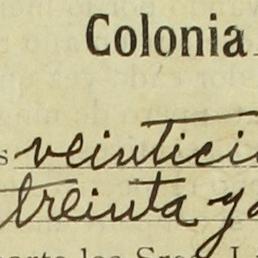 Colonia
s veintici
treinta y
arte los Sres. L